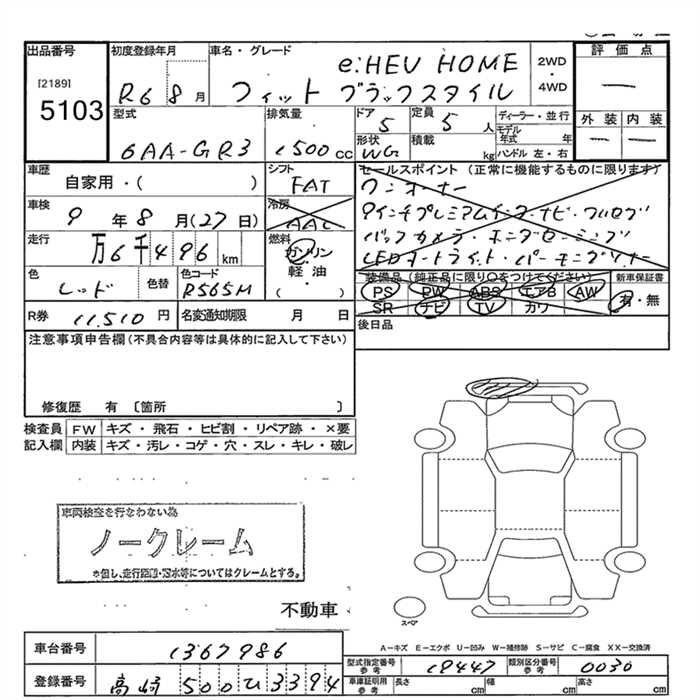 出品番号
[2189]
5103
初度登録年月
R6 8月
車名・グレード
e:HEV HOME
フィット ブラックスタイル
2WD
・
4WD
評価点
—
外装 内装
— —
型式
6AA-GR3
排気量
1500cc
ドア
5
定員
5人
形状
WG
積載
kg
ディーラー・並行
モデル年式 年
ハンドル 左・右
車歴
自家用・( )
シフト
FAT
車検
9年8月(27日)
冷房
AAC
走行
万6千496km
燃料
ガソリン
・
軽油
( )
色
レッド
色替
色コード
R565M
R券
11,510円
名変通知期限 月 日
セールスポイント(正常に機能するものに限ります)
ワンオーナー
9インチプレミアムインターナビ・フルセグ
バックカメラ・ホンダセンシング
LEDオートライト・パーキングソナー
装備品(純正品に限り○をつけてください)
PS PW ABS エアB AW
SR ナビ TV カワ
新車保証書
有・無
後日品
注意事項申告欄(不具合内容等は具体的に記入して下さい)
修復歴 有 〔箇所 〕
検査員記入欄
FW キズ・飛石・ヒビ割・リペア跡・×要
内装 キズ・汚レ・コゲ・穴・スレ・キレ・破レ
車両検査を行なわない為
ノークレーム
但し、走行距離・冠水等についてはクレームとする。
不動車
スペア
A-キズ E-エクボ U-凹み W-補修跡 S-サビ C-腐食 XX-交換済
車台番号
1367986
登録番号
高崎 500 ひ 3394
型式指定番号
参考
19447
類別区分番号
参考
0030
車庫証明用
参考
長さ cm
幅 cm
高さ cm